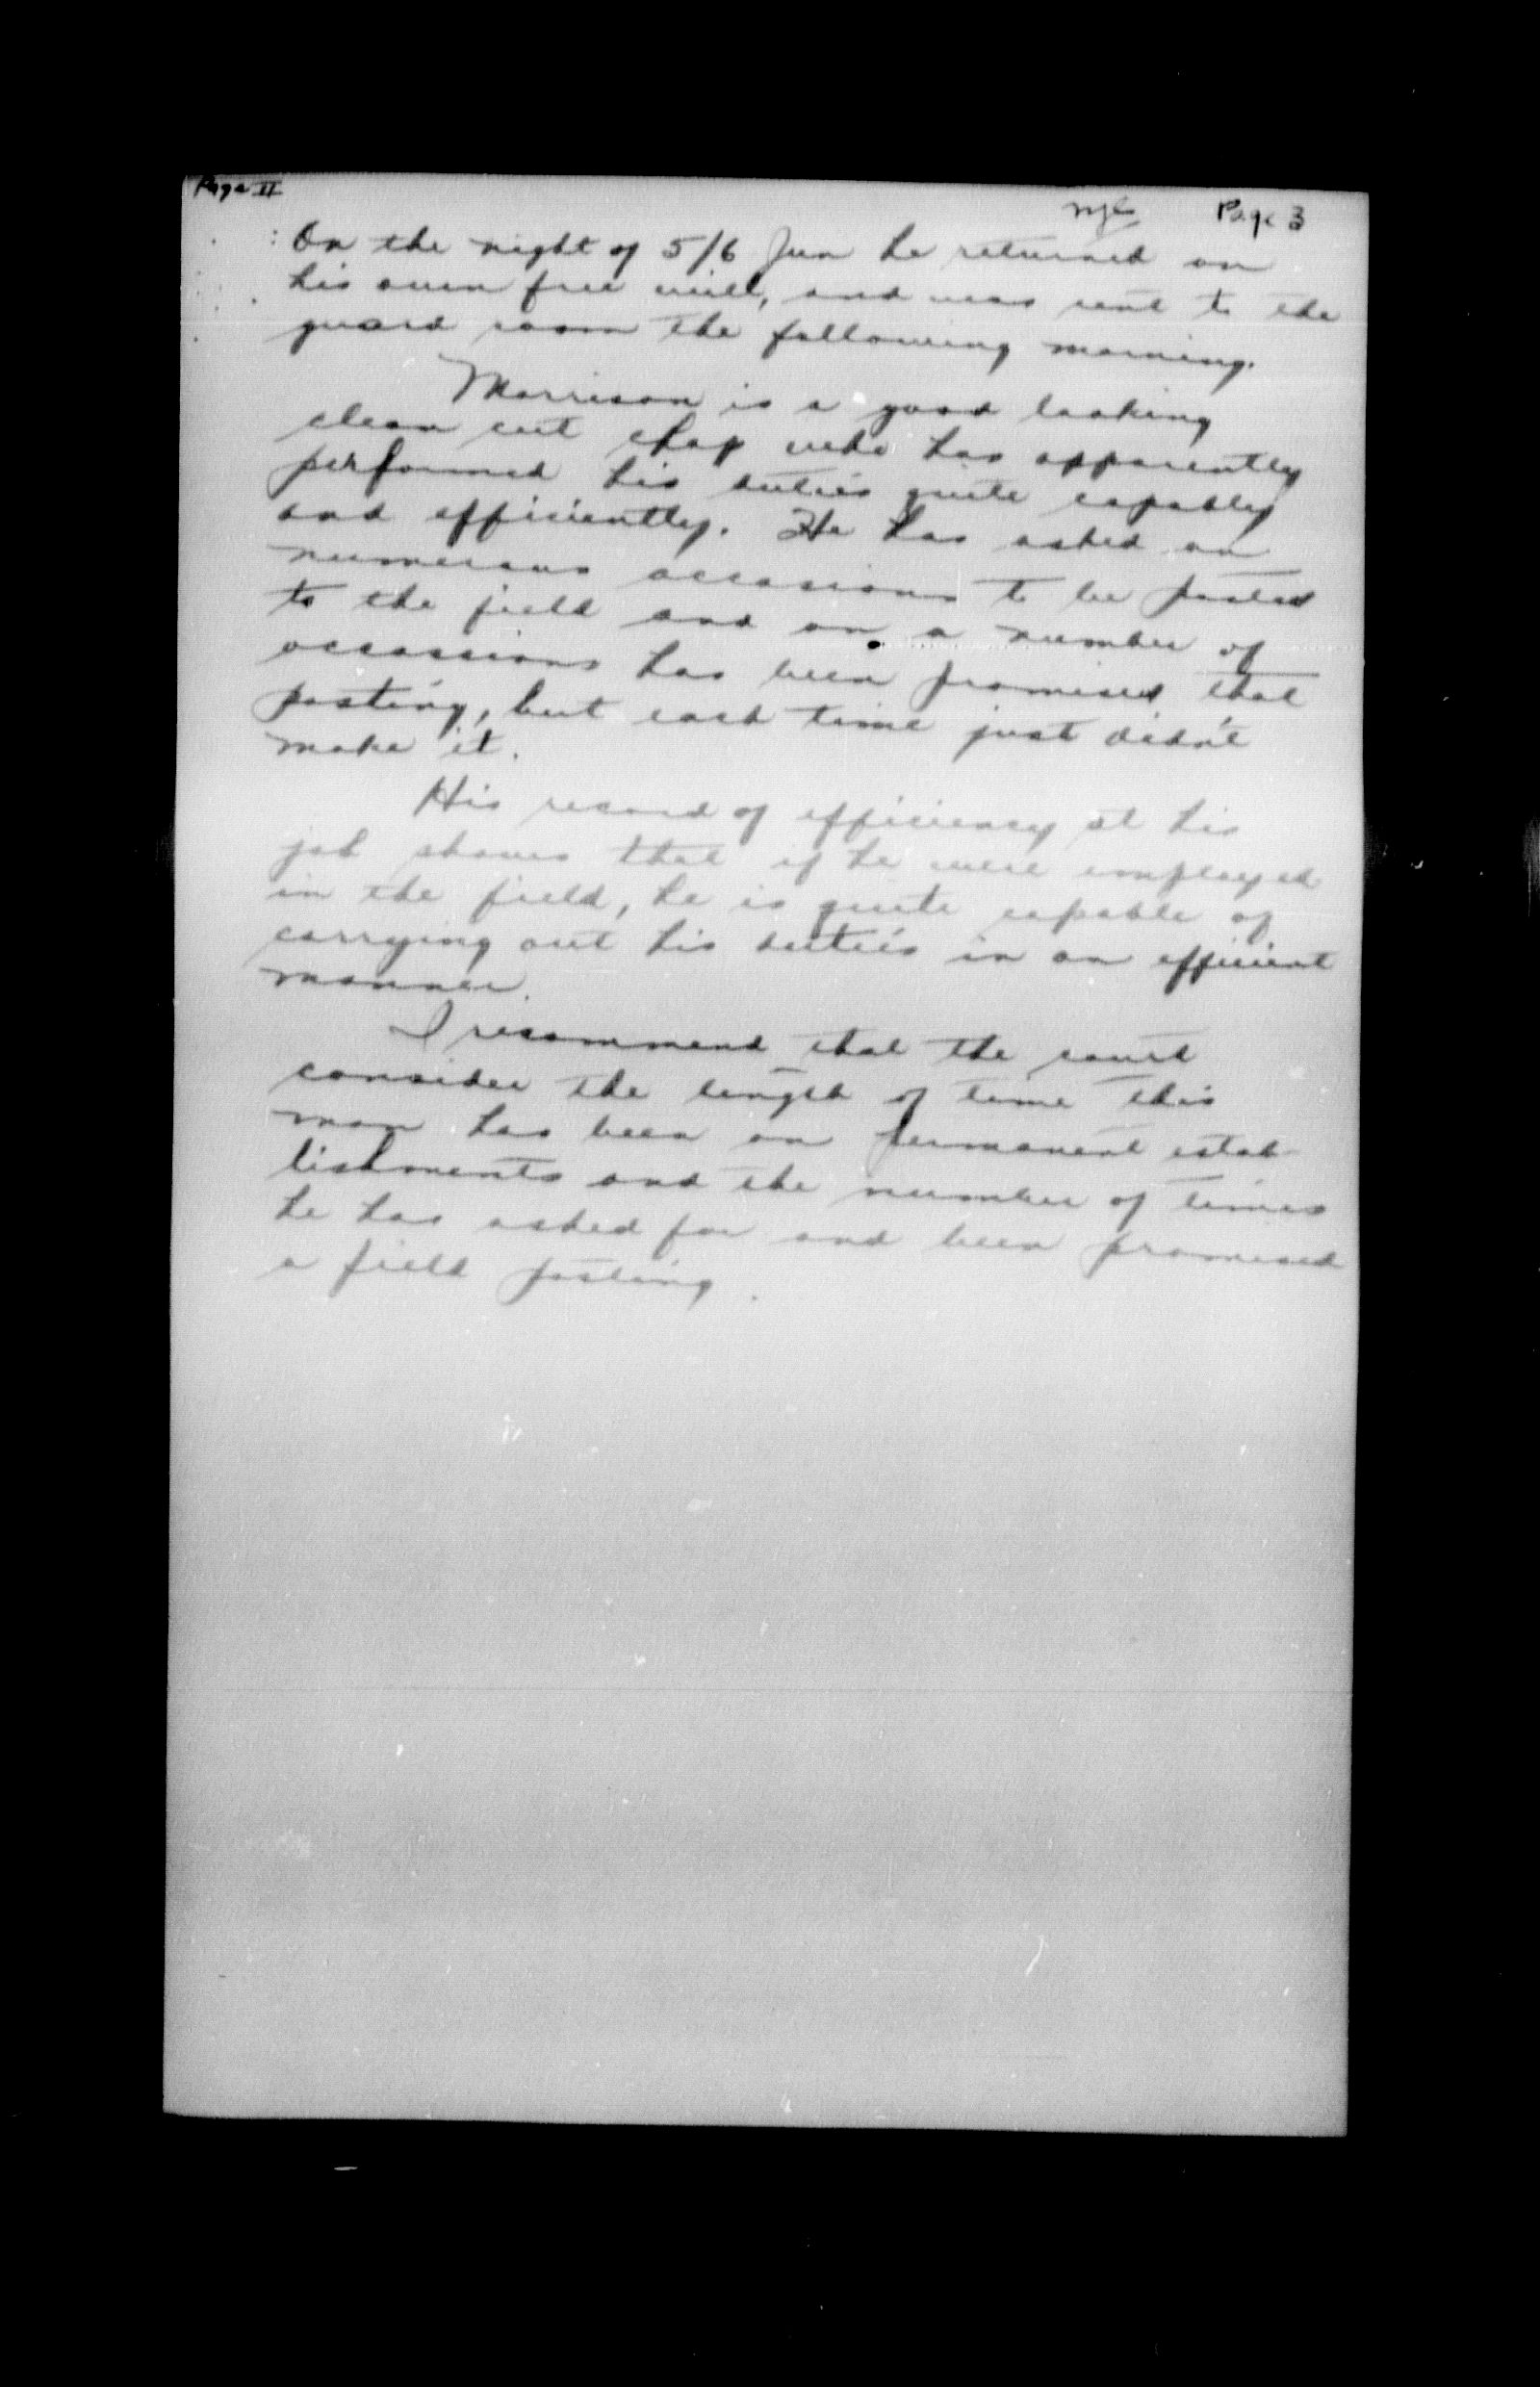 Page II
Page 3
On the night of 5/6 Jun he returned on
his own free will, and was sent to the
guard room the following morning.
Morrison is a good looking
clean cut chap who has apparently
performed his duties quite capably
and efficiently. He has asked on
numerous occasions to be posted
to the field and on a number of
occassions has been promised that
posting, but each time just didn't
make it.
His record of efficiency at his
job shows that if he were employed
in the field, he is quite capable of
carrying out his duties in an efficient
manner.
I recommend that the court
consider the length of time this
man has been on permanent estab-
lishments and the number of times
he has asked for and been promised
a field posting.